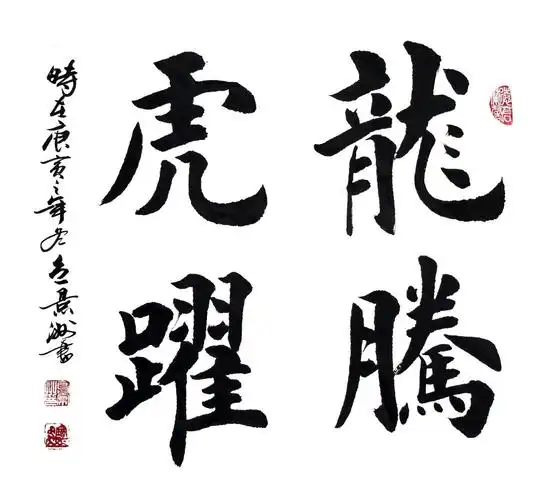 龍騰
虎躍
時在庚寅之年冬
景洲書